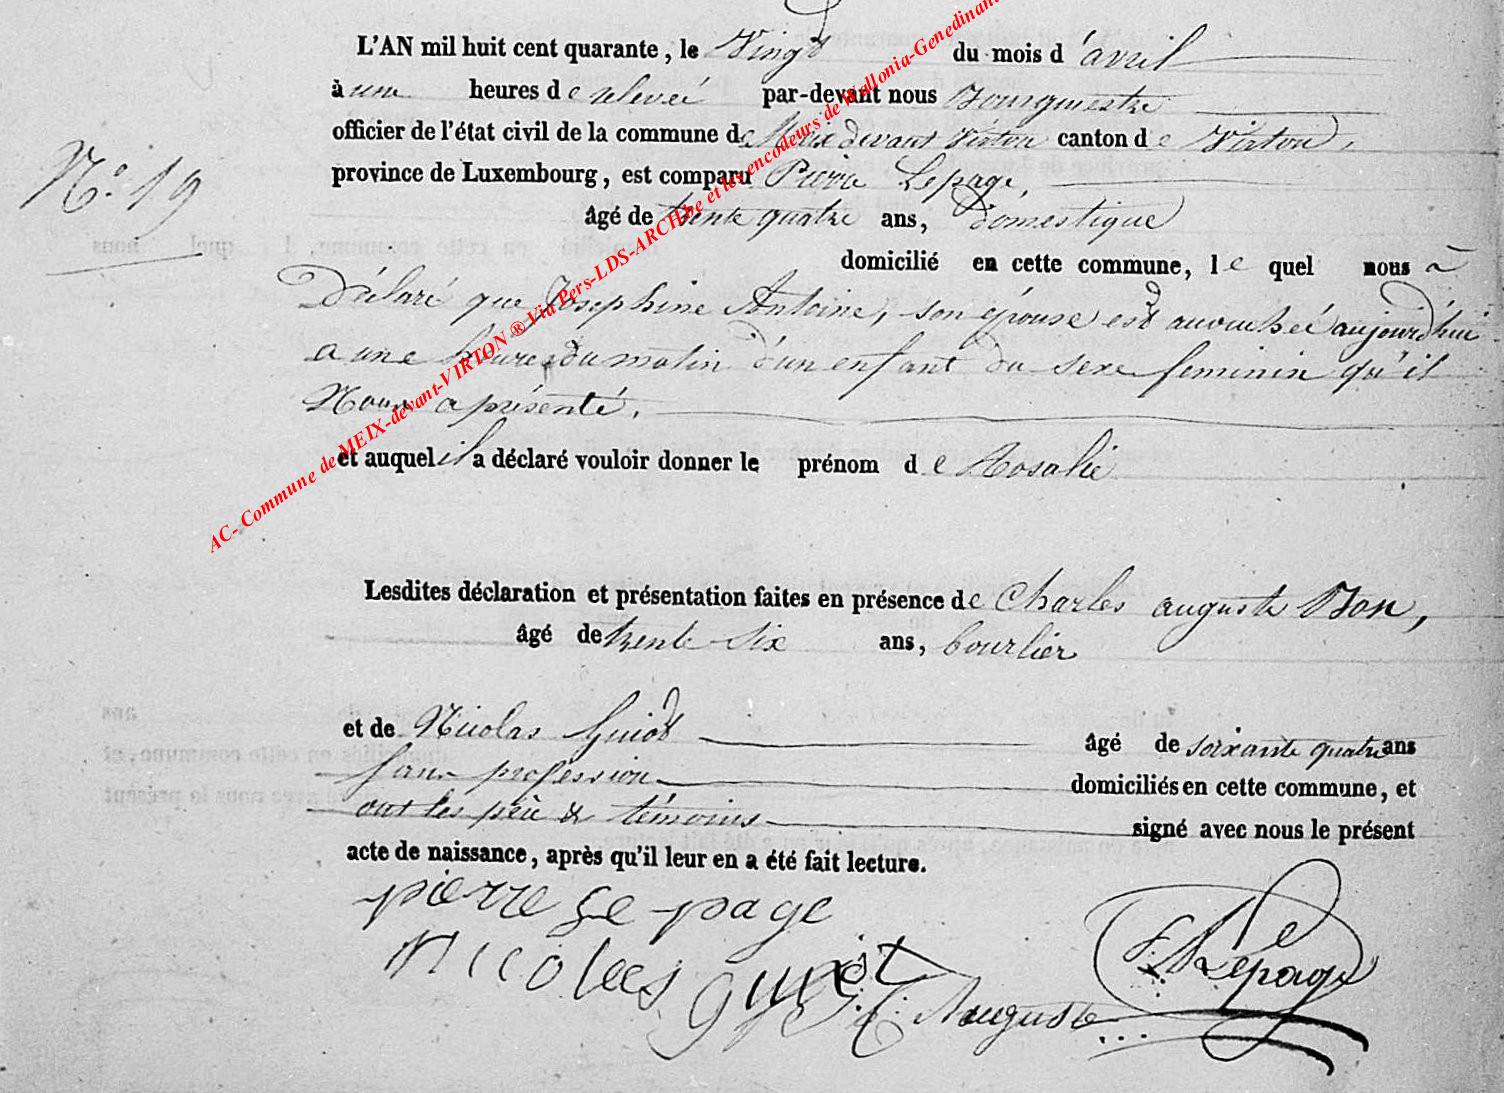 L'AN mil huit cent quarante, le Vingt du mois d'avril
à une heures de relevée par-devant nous Bourguestre
officier de l'état civil de la commune de Meix devant Virton canton de Virton,
province de Luxembourg, est comparu Pierre Lepage,
N.° 19
âgé de trente quatre ans, domestique
domicilié en cette commune, le quel nous à
Déclaré que Josephine Antoine, son épouse est accouchée aujourd'hui
a une heure du matin d'un enfant du sexe feminin qu'il
Nous a présenté.
et auquel il a déclaré vouloir donner le prénom de Rosalie
AC- Commune de MEIX-devant-VIRTON ® Via Pers-LDS-ARCH.be et les encodeurs de Wallonia-Genedinant
Lesdites déclaration et présentation faites en présence de Charles auguste Bon,
âgé de trente six ans, bourlier
et de Nicolas Guiot âgé de soixante quatre ans
sans profession domiciliés en cette commune, et
ont les père & témoins signé avec nous le présent
acte de naissance, après qu'il leur en a été fait lecture.
pierre Le page
Nicolas guiot
Auguste
Lepage